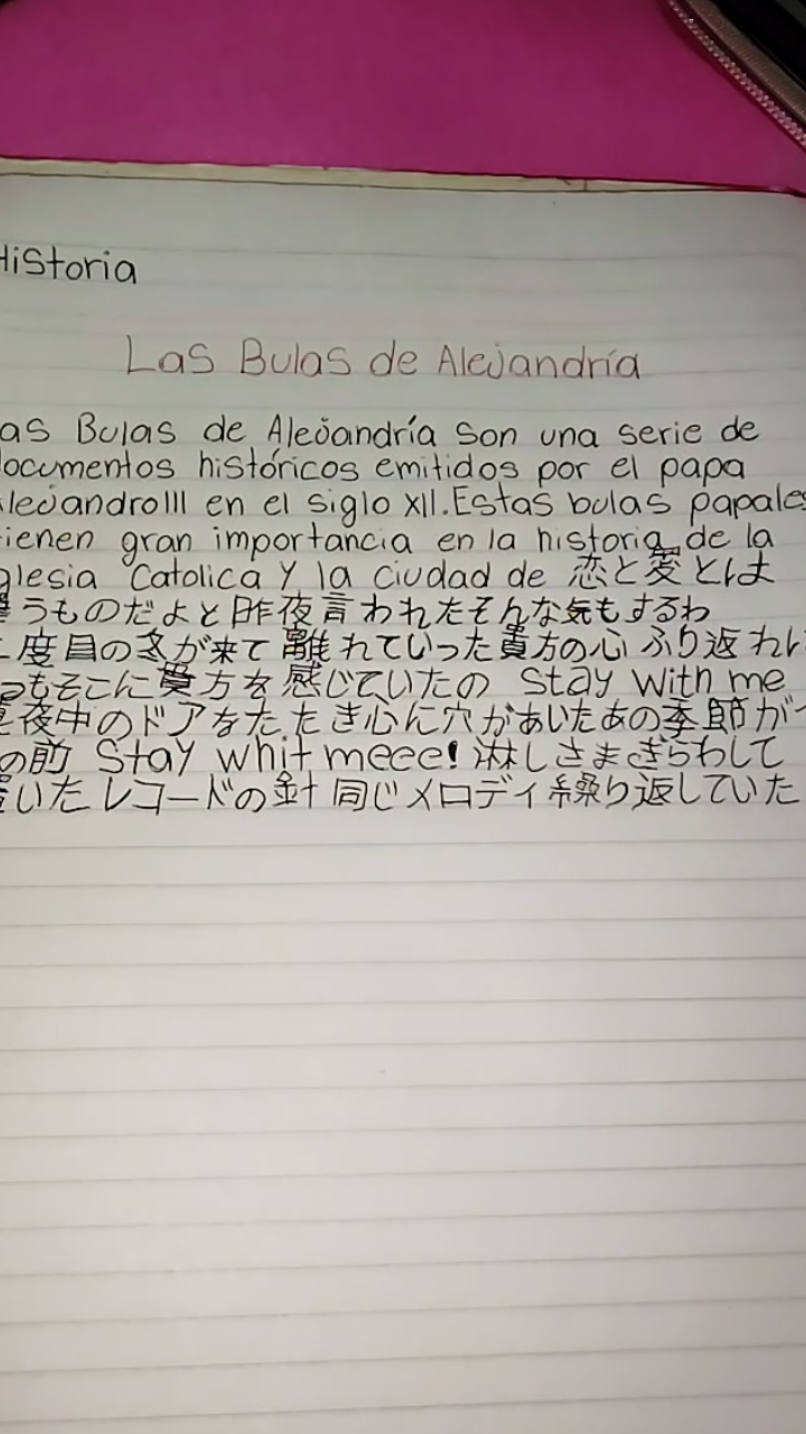 Historia
Las Bulas de Alejandría
as Bulas de Alejandría son una serie de
documentos históricos emitidos por el papa
Alejandro III en el siglo XII. Estas bulas papales
tienen gran importancia en la historia de la
glesia Catolica y la ciudad de 恋と愛とは
うものだよと昨夜言われたそんな気もするわ
二度目の冬が来て離れていった貴方の心 ふり返れば
つもそこに貴方を感じていたの Stay with me
真夜中のドアをたたき心に穴があいたあの季節が
の前 Stay whit meee! 淋しさまぎらわして
置いたレコードの針 同じメロディ繰り返していた